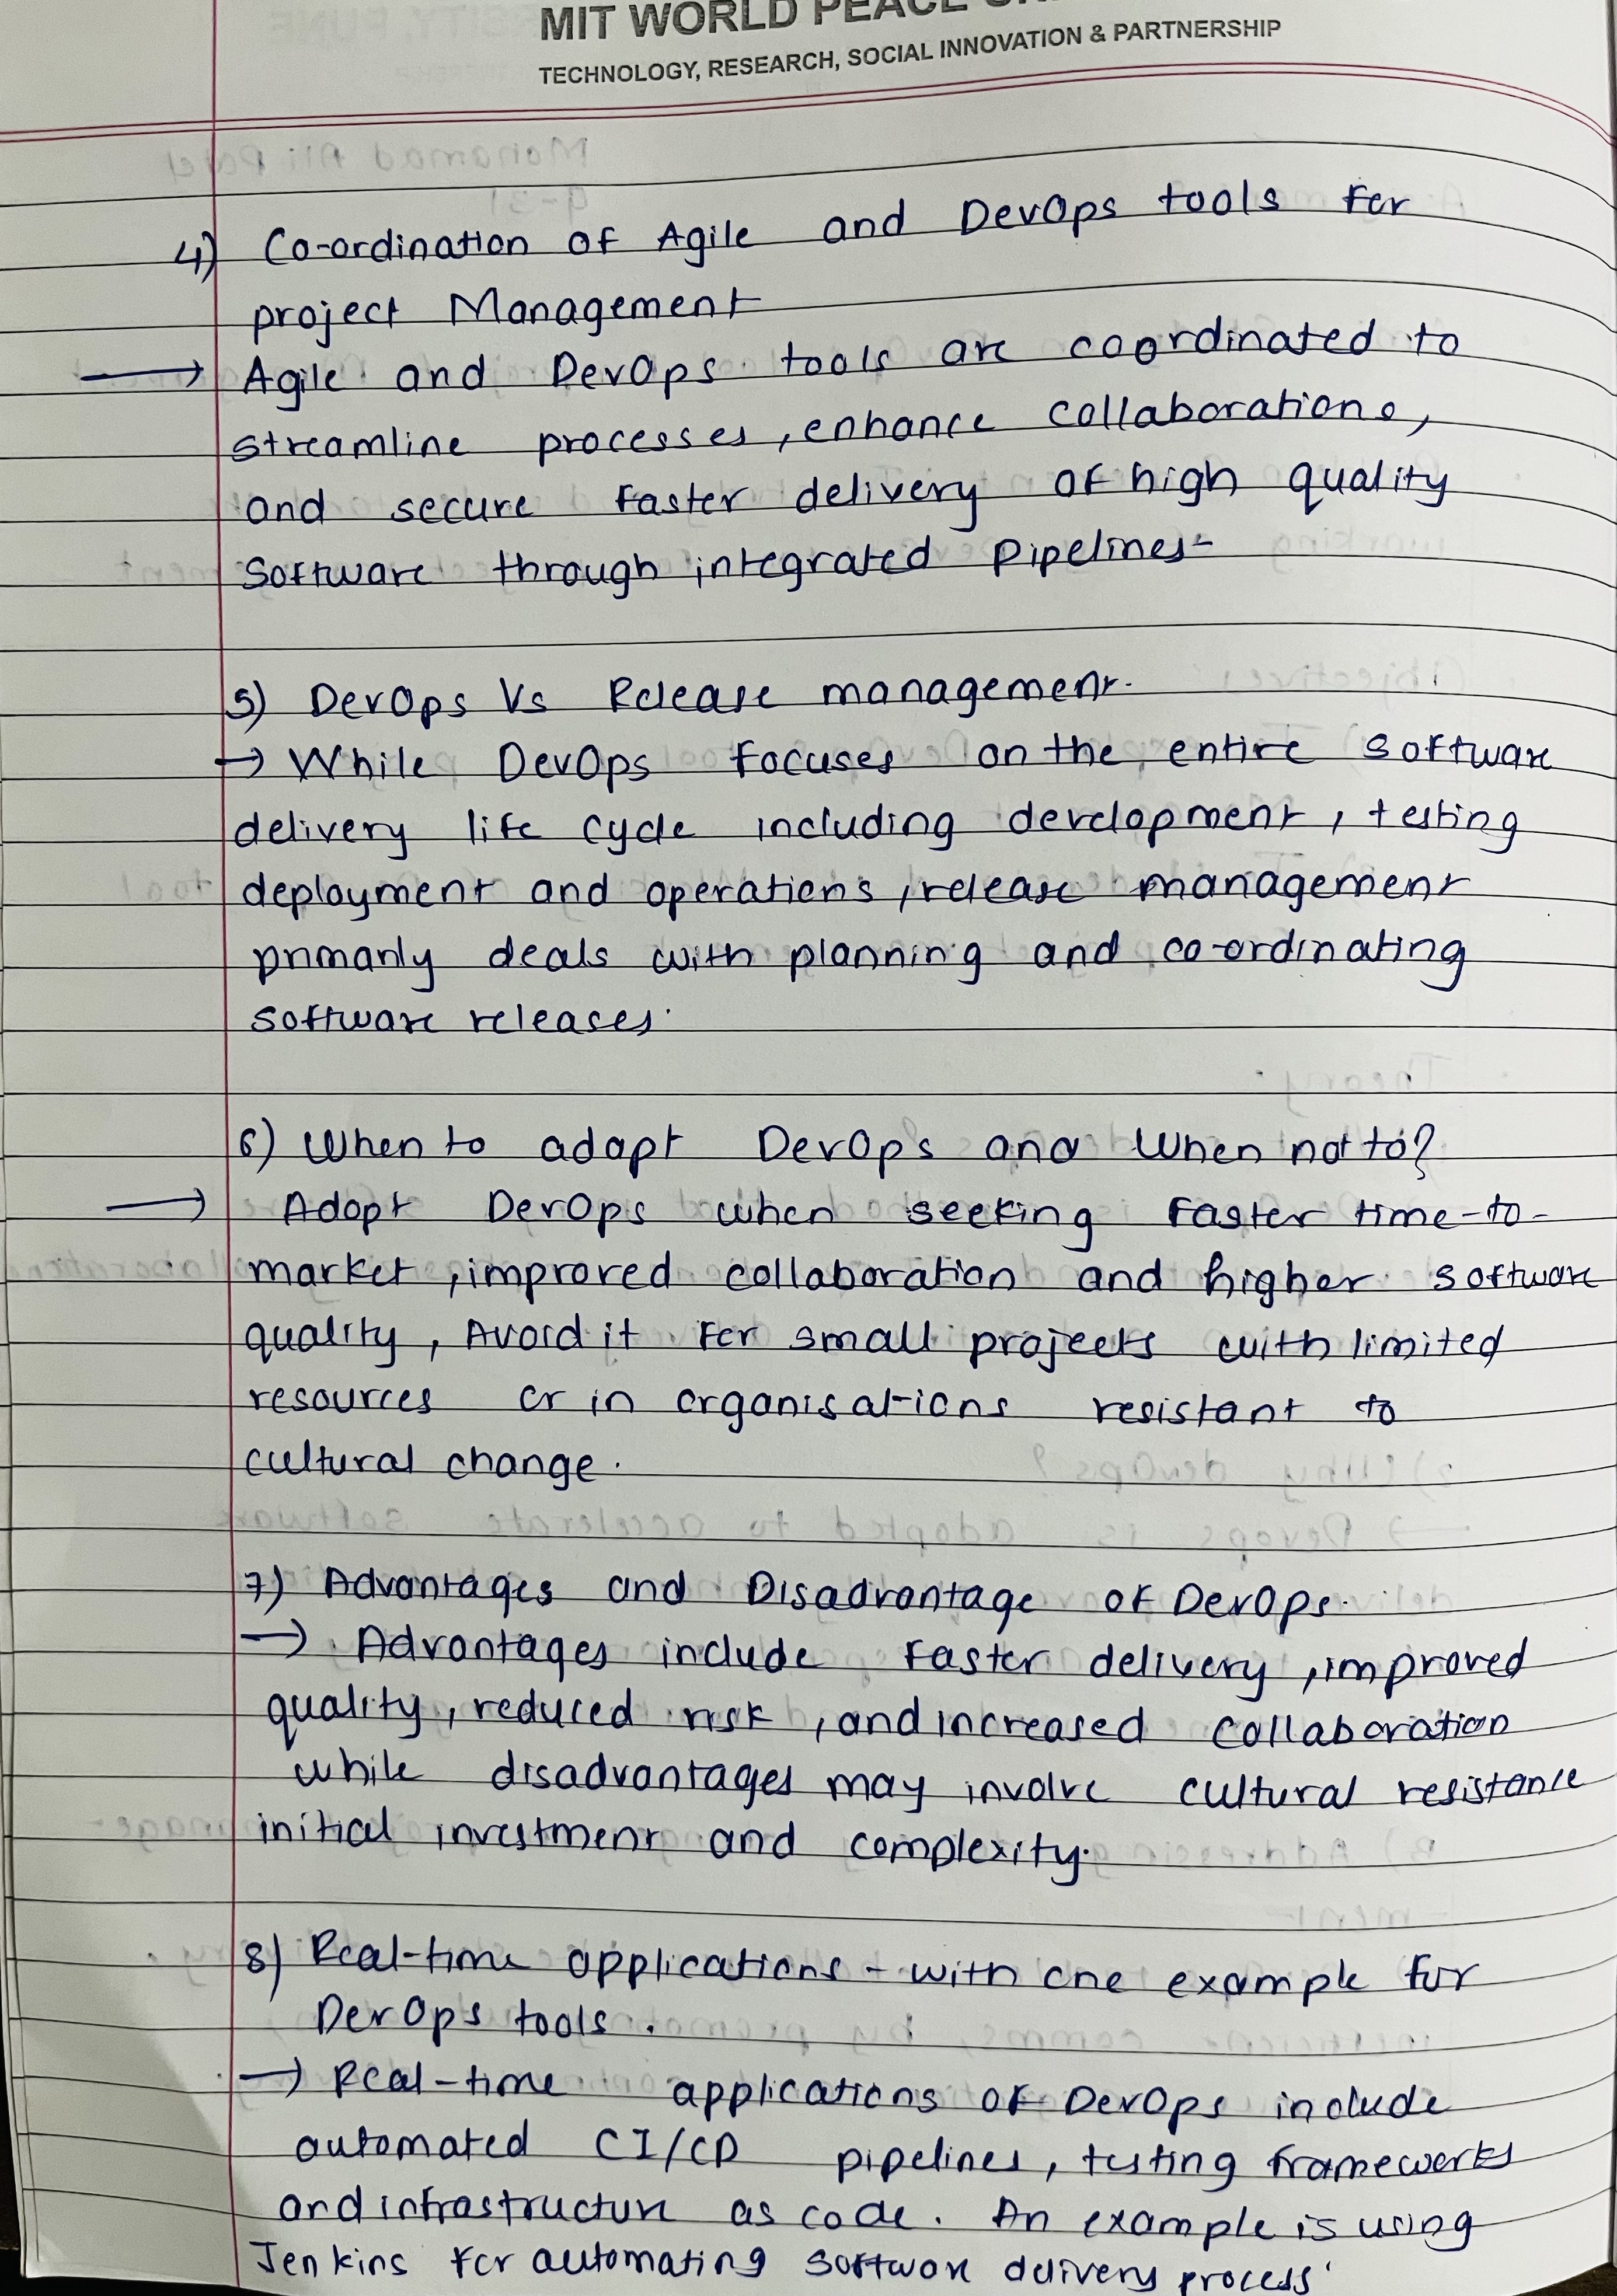 MIT WORLD PEACE
TECHNOLOGY, RESEARCH, SOCIAL INNOVATION & PARTNERSHIP
4) Co-ordination of Agile and DevOps tools for
project Management
→ Agile and DevOps tools are coordinated to
streamline processes, enhance collaborations,
and secure faster delivery of high quality
Software through integrated Pipelines-
5) DevOps Vs Release management.
→ While DevOps focuses on the entire software
delivery life cycle including development, testing
deployment and operations, release management
primarily deals with planning and co-ordinating
software releases.
6) When to adopt DevOps and When not to?
→ Adopt DevOps when seeking faster time-to-
market, improved collaboration and higher software
quality, Avoid it for small projects with limited
resources or in organisations resistant to
cultural change.
7) Advantages and Disadvantage of DevOps.
→ Advantages include faster delivery, improved
quality, reduced risk, and increased collaboration
while disadvantages may involve cultural resistance
initial investment and complexity.
8) Real-time applications - with one example for
DevOps tools.
→ Real-time applications of DevOps include
automated CI/CD pipelines, testing frameworks
and infrastructure as code. An example is using
Jenkins for automating software delivery process.